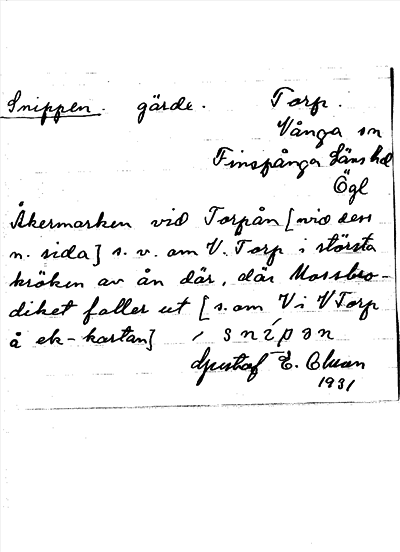 Snippen. gärde. Torp.
Vånga sn
Finspånga läns hd
Ögl
Åkermarken vid Torpån [vid dess
n. sida] s. v. om V. Torp i största
kröken av ån där, där Mossbro-
diket faller ut [s. om V i V Torp
å ek-kartan] snipən
Gustaf E.
1931